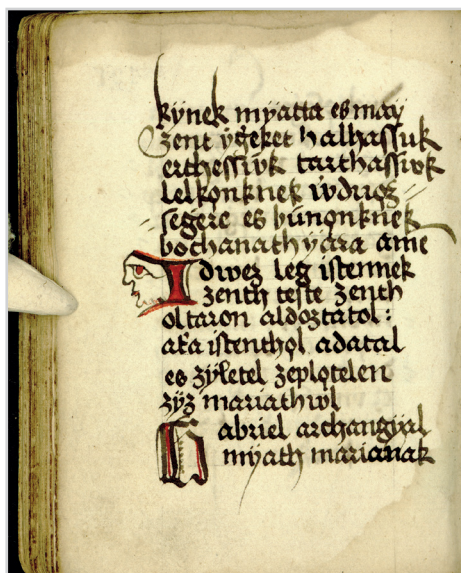 kÿnek mÿatta es maÿ
zent ÿgeket halhassuk
erthessiwk tarthassiwk
lelkonknek ẃduoz
segere es búnonknek
bochanathÿara ame
Idwez leg istennek
zenth teste zenth
oltaron aldoztatol :
at́a istenthol adatal
es zÿletel zeplotelen
zÿz mariathwl
Gabriel archangÿal
mÿath marianak